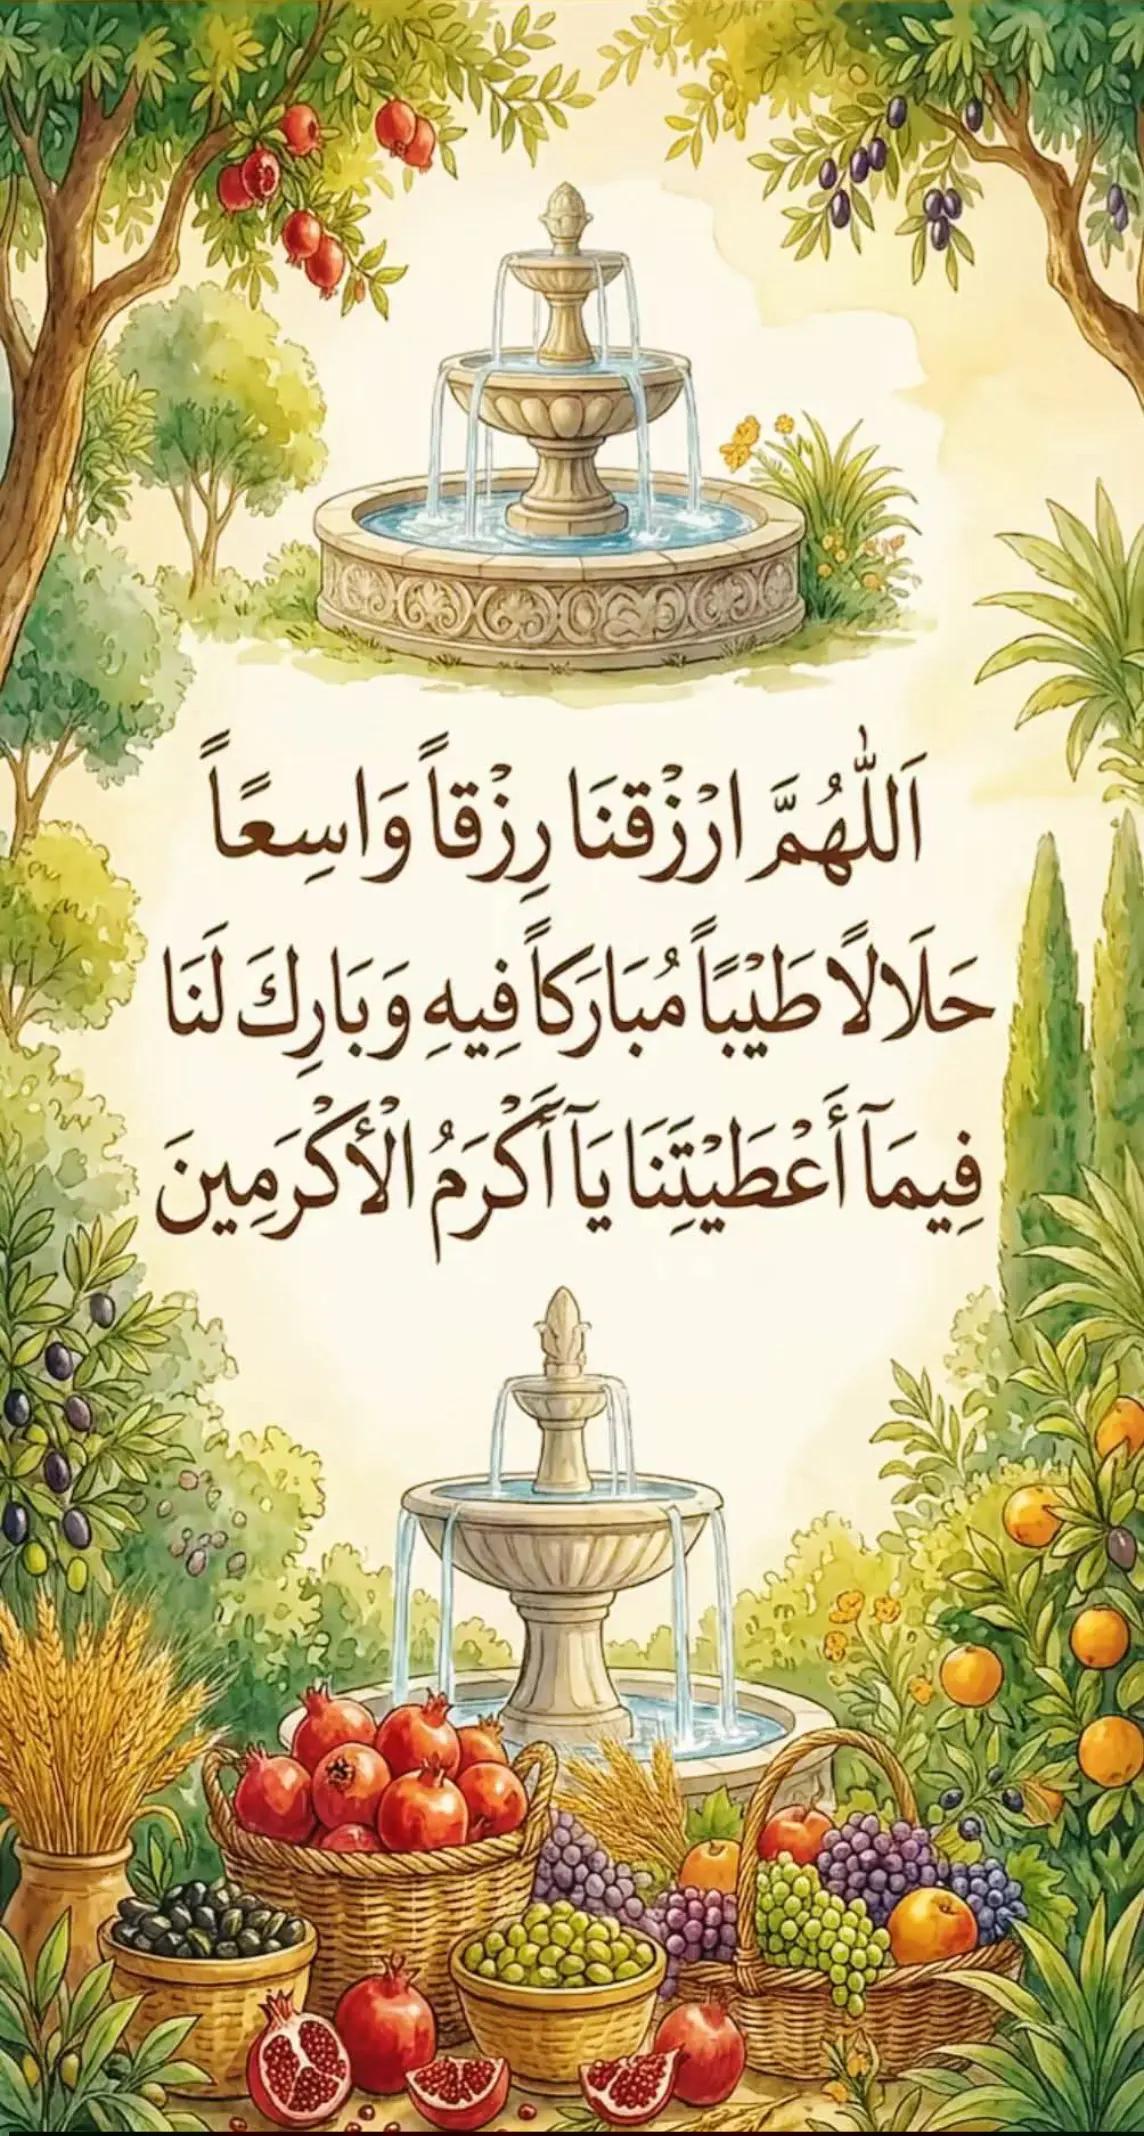 اَللّٰهُمَّ ارْزُقْنَا رِزْقاً وَاسِعًاً
حَلَالًا طَيْبَاً مُبَارَكاً فِيهِ وَبَارِكَ لَنَا
فِيمَآ أَعْطَيْتَِنَا يَآ أَكْرَمُ الْأَكْرَمِينَ